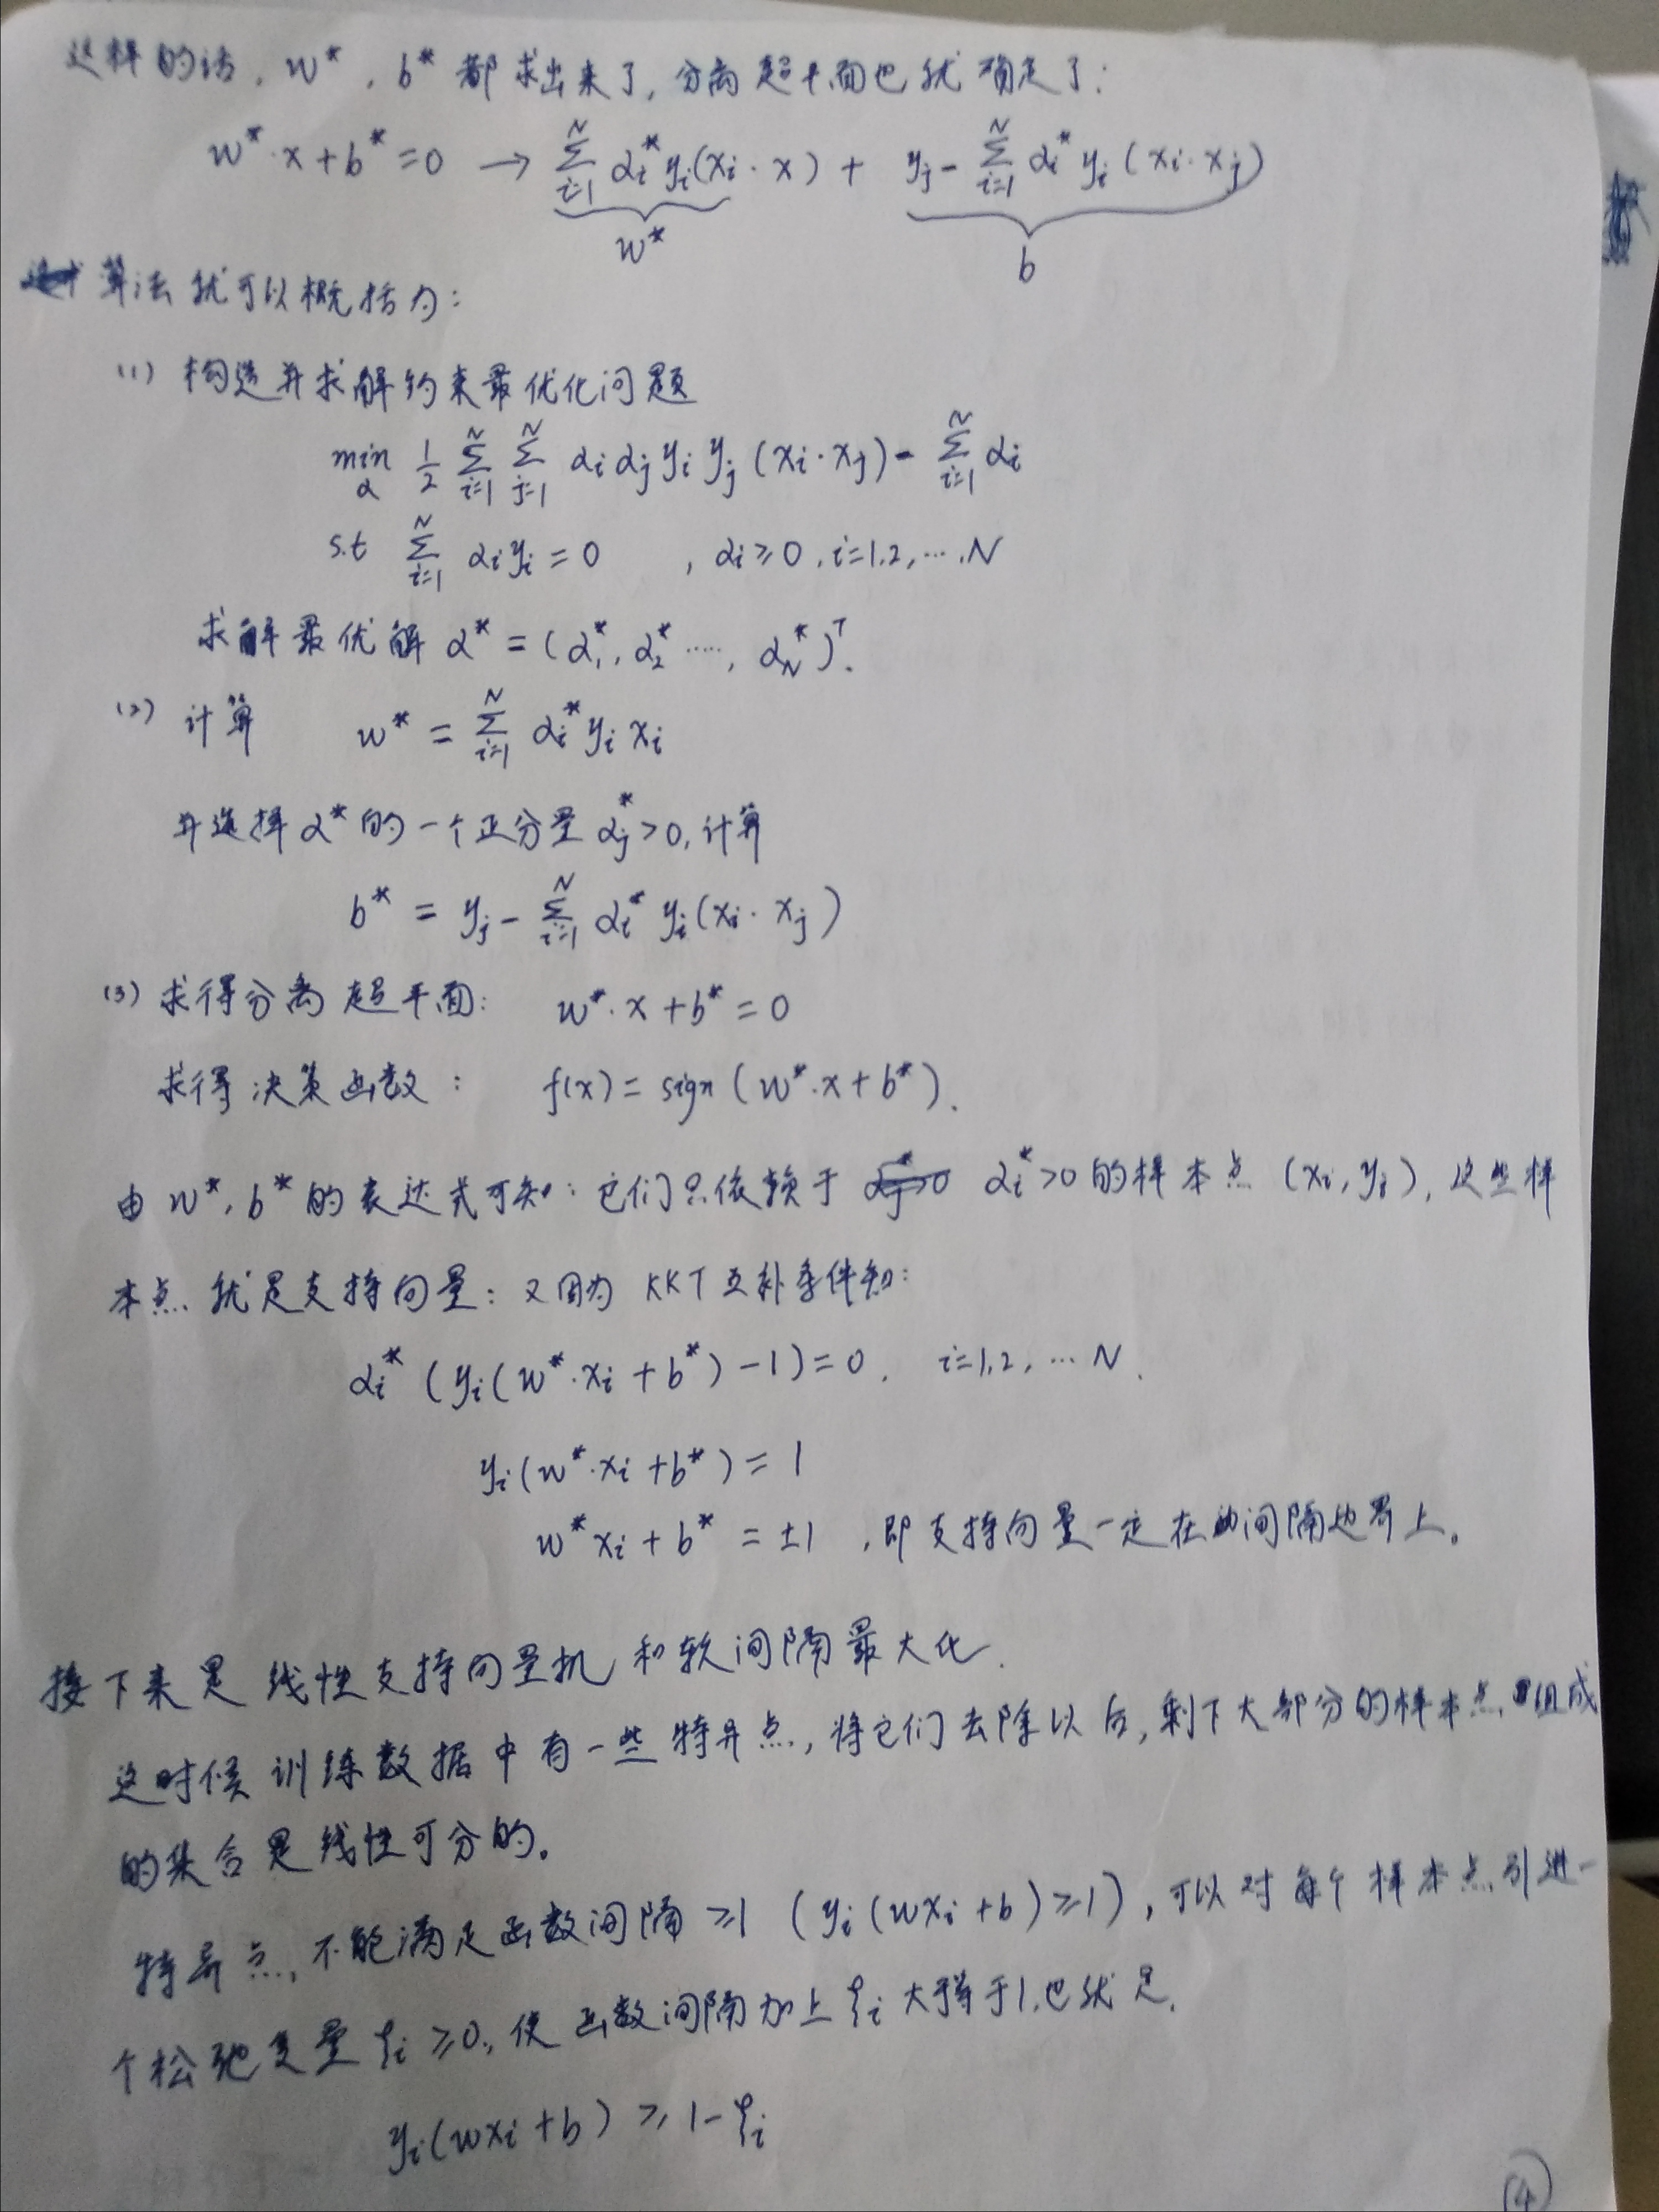 这样的话, w*, b* 都求出来了, 分离超平面也就确定了:
w*·x+b*=0 → ∑_{i=1}^{N} α_i* y_i(x_i·x) + y_j - ∑_{i=1}^{N} α_i* y_i (x_i·x_j)
w* b
算法就可以概括为:
(1) 构造并求解约束最优化问题
min_α 1/2 ∑_{i=1}^{N} ∑_{j=1}^{N} α_i α_j y_i y_j (x_i·x_j) - ∑_{i=1}^{N} α_i
s.t ∑_{i=1}^{N} α_i y_i = 0 , α_i ≥ 0, i=1.2, ….N
求解最优解 α* = (α_1*, α_2* ……, α_N*)^T.
(2) 计算 w* = ∑_{i=1}^{N} α_i* y_i x_i
并选择 α* 的一个正分量 α_j* > 0, 计算
b* = y_j - ∑_{i=1}^{N} α_i* y_i (x_i·x_j)
(3) 求得分离超平面: w*·x+b*=0
求得决策函数: f(x) = sign (w*·x+b*).
由 w*, b* 的表达式可知: 它们只依赖于 α_i*>0 的样本点 (x_i, y_i), 这些样
本点就是支持向量; 又因为 KKT 互补条件知:
α_i* (y_i(w*·x_i+b*)-1)=0, i=1,2, … N.
y_i(w*·x_i+b*) = 1
w*x_i+b* = ±1 , 即支持向量一定在间隔边界上。
接下来是线性支持向量机和软间隔最大化.
这时候训练数据中有一些特异点, 将它们去除以后, 剩下大部分的样本点组成
的集合是线性可分的。
特异点, 不能满足函数间隔 ≥1 (y_i(wx_i+b)≥1), 可以对每个样本点引进一
个松弛变量 ξ_i ≥0, 使函数间隔加上 ξ_i 大于等于1, 也就是.
y_i(wx_i+b) ≥ 1-ξ_i
④